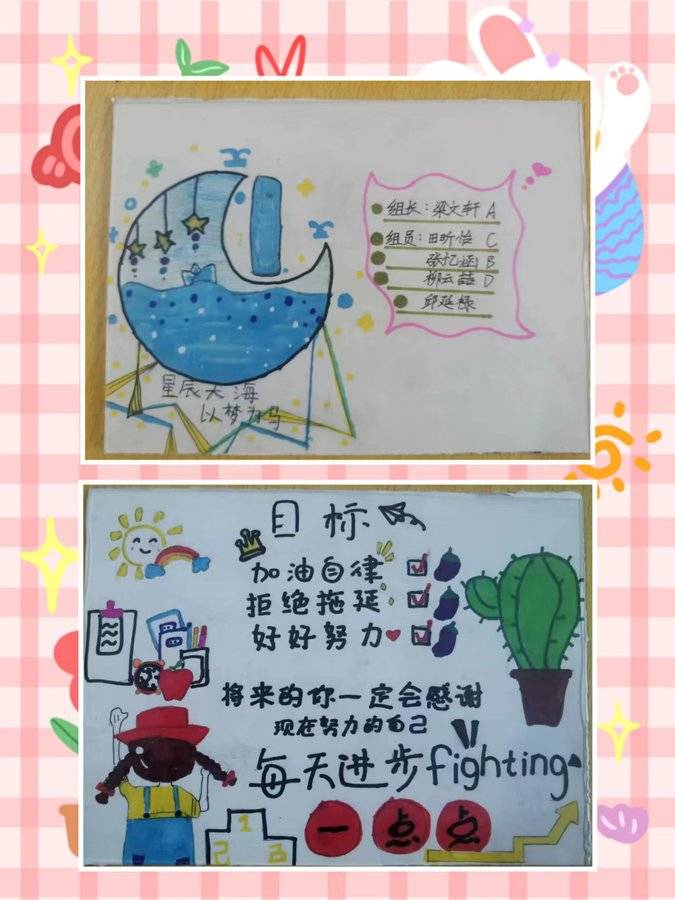 组长：梁文轩 A
组员：田昕怡 C
张忆涵 B
柳云喆 D
邱延禄
星辰大海
以梦为马
目标
加油自律
拒绝拖延
好好努力
将来的你一定会感谢
现在努力的自己
每天进步fighting
一点点
1
2 3